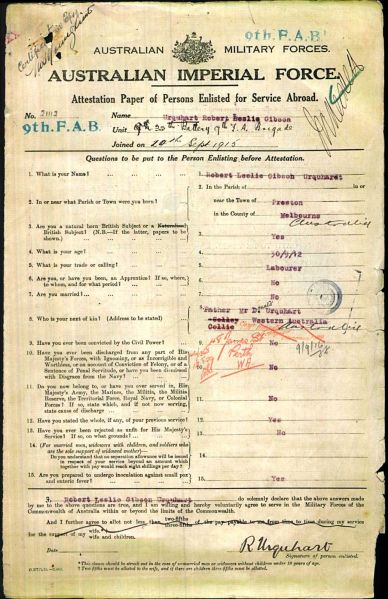 9th. F.A.B.
AUSTRALIAN MILITARY FORCES.
AUSTRALIAN IMPERIAL FORCE.
Attestation Paper of Persons Enlisted for Service Abroad.
No.
Name Urquhart Robert Leslie Gibson
9th. F.A.B.
Unit Battery 9th F.A. Brigade
Joined on 20th Sept 1915
Questions to be put to the Person Enlisting before Attestation.
1. What is your Name?
1. Robert Leslie Gibson Urquhart
2. In or near what Parish or Town were you born?
2. In the Parish of
near the Town of Preston
in the County of Melbourne
Australia
3. Are you a natural born British Subject or a Naturalised British Subject? (N.B.—If the latter, papers to be shown).
3. Yes
4. What is your age?
4. 30/9/12
5. What is your trade or calling?
5. Labourer
6. Are you, or have you been, an Apprentice? If so, where, to whom, and for what period?
6. No
7. Are you married?
7. No
8. Who is your next of kin? (Address to be stated)
8. Father Mr D. Urquhart
Collie Western Australia
Perth
WA
9. Have you ever been convicted by the Civil Power?
9. No
10. Have you ever been discharged from any part of His
Majesty's Forces, with Ignominy, or as Incorrigible and
Worthless, or on account of Conviction of Felony, or of a
Sentence of Penal Servitude, or have you been dismissed
with Disgrace from the Navy?
10. No
11. Do you now belong to, or have you ever served in, His
Majesty's Army, the Marines, the Militia, the Militia
Reserve, the Territorial Force, Royal Navy, or Colonial
Forces? If so, state which, and if not now serving,
state cause of discharge
11. No
12. Have you stated the whole, if any, of your previous service?
12. Yes
13. Have you ever been rejected as unfit for His Majesty's
Service? If so, on what grounds?
13. No
14. (For married men, widowers with children, and soldiers who
are the sole support of widowed mother)—
Do you understand that no separation allowance will be issued
in respect of your service beyond an amount which
together with pay would reach eight shillings per day?
14.
15. Are you prepared to undergo inoculation against small pox
and enteric fever?
15. Yes
I, Robert Leslie Gibson Urquhart do solemnly declare that the above answers made
by me to the above questions are true, and I am willing and hereby voluntarily agree to serve in the Military Forces of the
Commonwealth of Australia within or beyond the limits of the Commonwealth.
And I further agree to allot not less than two-fifths three-fifths of the pay payable to me from time to time during my service
for the support of my wife. wife and children.
Date
R Urquhart
Signature of person enlisted.